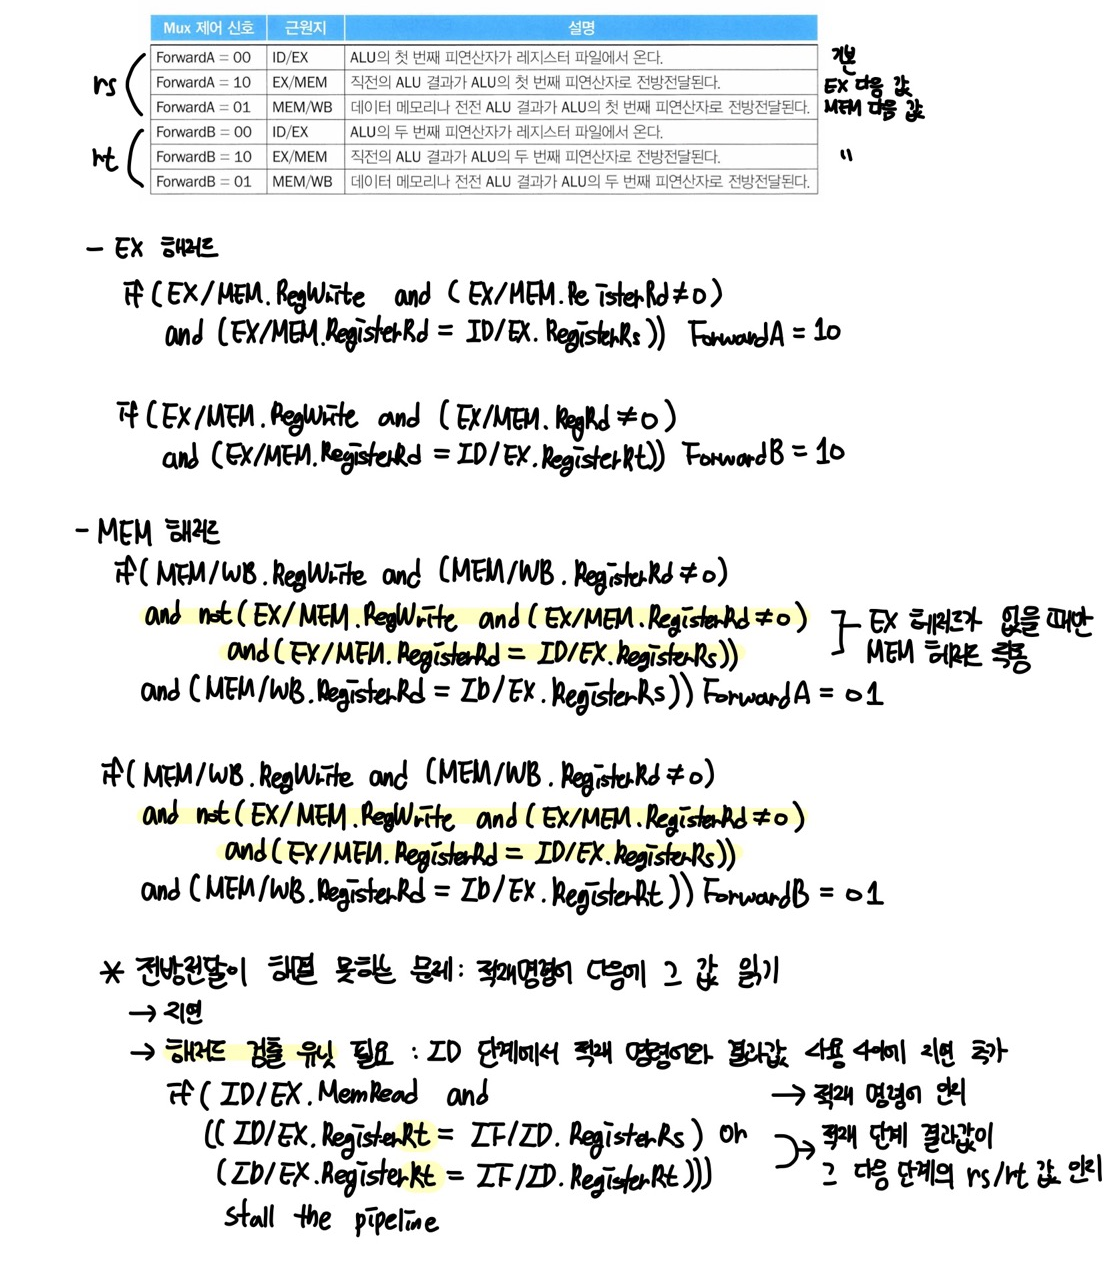 Mux 제어 신호 근원지 설명
ForwardA = 00 ID/EX ALU의 첫 번째 피연산자가 레지스터 파일에서 온다. 기본
rs ForwardA = 10 EX/MEM 직전의 ALU 결과가 ALU의 첫 번째 피연산자로 전방전달된다. EX 다음 값
ForwardA = 01 MEM/WB 데이터 메모리나 전전 ALU 결과가 ALU의 첫 번째 피연산자로 전방전달된다. MEM 다음 값
ForwardB = 00 ID/EX ALU의 두 번째 피연산자가 레지스터 파일에서 온다.
rt ForwardB = 10 EX/MEM 직전의 ALU 결과가 ALU의 두 번째 피연산자로 전방전달된다. "
ForwardB = 01 MEM/WB 데이터 메모리나 전전 ALU 결과가 ALU의 두 번째 피연산자로 전방전달된다.
- EX 해저드
if (EX/MEM.RegWrite and (EX/MEM.Re isterRd≠0)
and (EX/MEM.RegisterRd = ID/EX.RegisterRs)) ForwardA = 10
if (EX/MEM.RegWrite and (EX/MEM.RegRd ≠0)
and (EX/MEM.RegisterRd = ID/EX.RegisterRt)) ForwardB = 10
- MEM 해저드
if (MEM/WB.RegWrite and (MEM/WB.RegisterRd≠0)
and not (EX/MEM.RegWrite and (EX/MEM.RegisterRd≠0)
and (EX/MEM.RegisterRd = ID/EX.RegisterRs))
and (MEM/WB.RegisterRd = ID/EX.RegisterRs)) ForwardA = 01
EX 해저드가 없을 때만
MEM 해저드 작동
if (MEM/WB.RegWrite and (MEM/WB.RegisterRd≠0)
and not (EX/MEM.RegWrite and (EX/MEM.RegisterRd≠0)
and (EX/MEM.RegisterRd = ID/EX.RegisterRs))
and (MEM/WB.RegisterRd = ID/EX.RegisterRt)) ForwardB = 01
* 전방전달이 해결 못하는 문제: 적재명령어 다음에 그 값 읽기
→ 지연
→ 해저드 검출 유닛 필요 : ID 단계에서 적재 명령어와 결과값 사용 사이에 지연 추가
if (ID/EX.MemRead and → 적재 명령어 인지
((ID/EX.RegisterRt = IF/ID.RegisterRs) or → 적재 단계 결과값이
(ID/EX.RegisterRt = IF/ID.RegisterRt))) 그 다음 단계의 rs/rt 값 인지
stall the pipeline